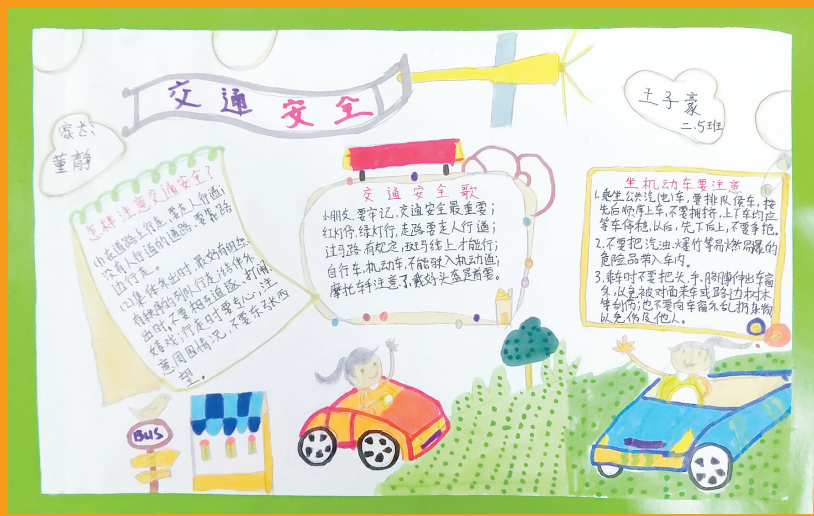 交通安全
家长:
董静
王子豪
二.5班
怎样注意交通安全?
(1)在道路上行走,要走人行道;
没有人行道的道路,要靠路
边行走。
(2)集体外出时,最好有组织、
有秩序的列队行走;结伴外
出时,不要相互追逐、打闹、
嬉戏;行走时要专心,注
意周围情况,不要东张西
望。
交通安全歌
小朋友,要牢记,交通安全最重要;
红灯停,绿灯行,走路要走人行道;
过马路,有规定,斑马线上才能行;
自行车,机动车,不能驶入机动道;
摩托车手注意了,戴好头盔是首要。
坐机动车要注意
1.乘坐公共汽(电)车,要排队侯车,按
先后顺序上车,不要拥挤,上下车均应
等车停稳,以后,先下后上,不要争抢。
2.不要把汽油、爆竹等易燃易爆的
危险品带入车内。
3.乘车时不要把头、手、胳膊伸出车窗
外,以免被对面来车或路边树木
等刮伤;也不要向车窗外乱扔杂物
以免伤及他人。
BUS